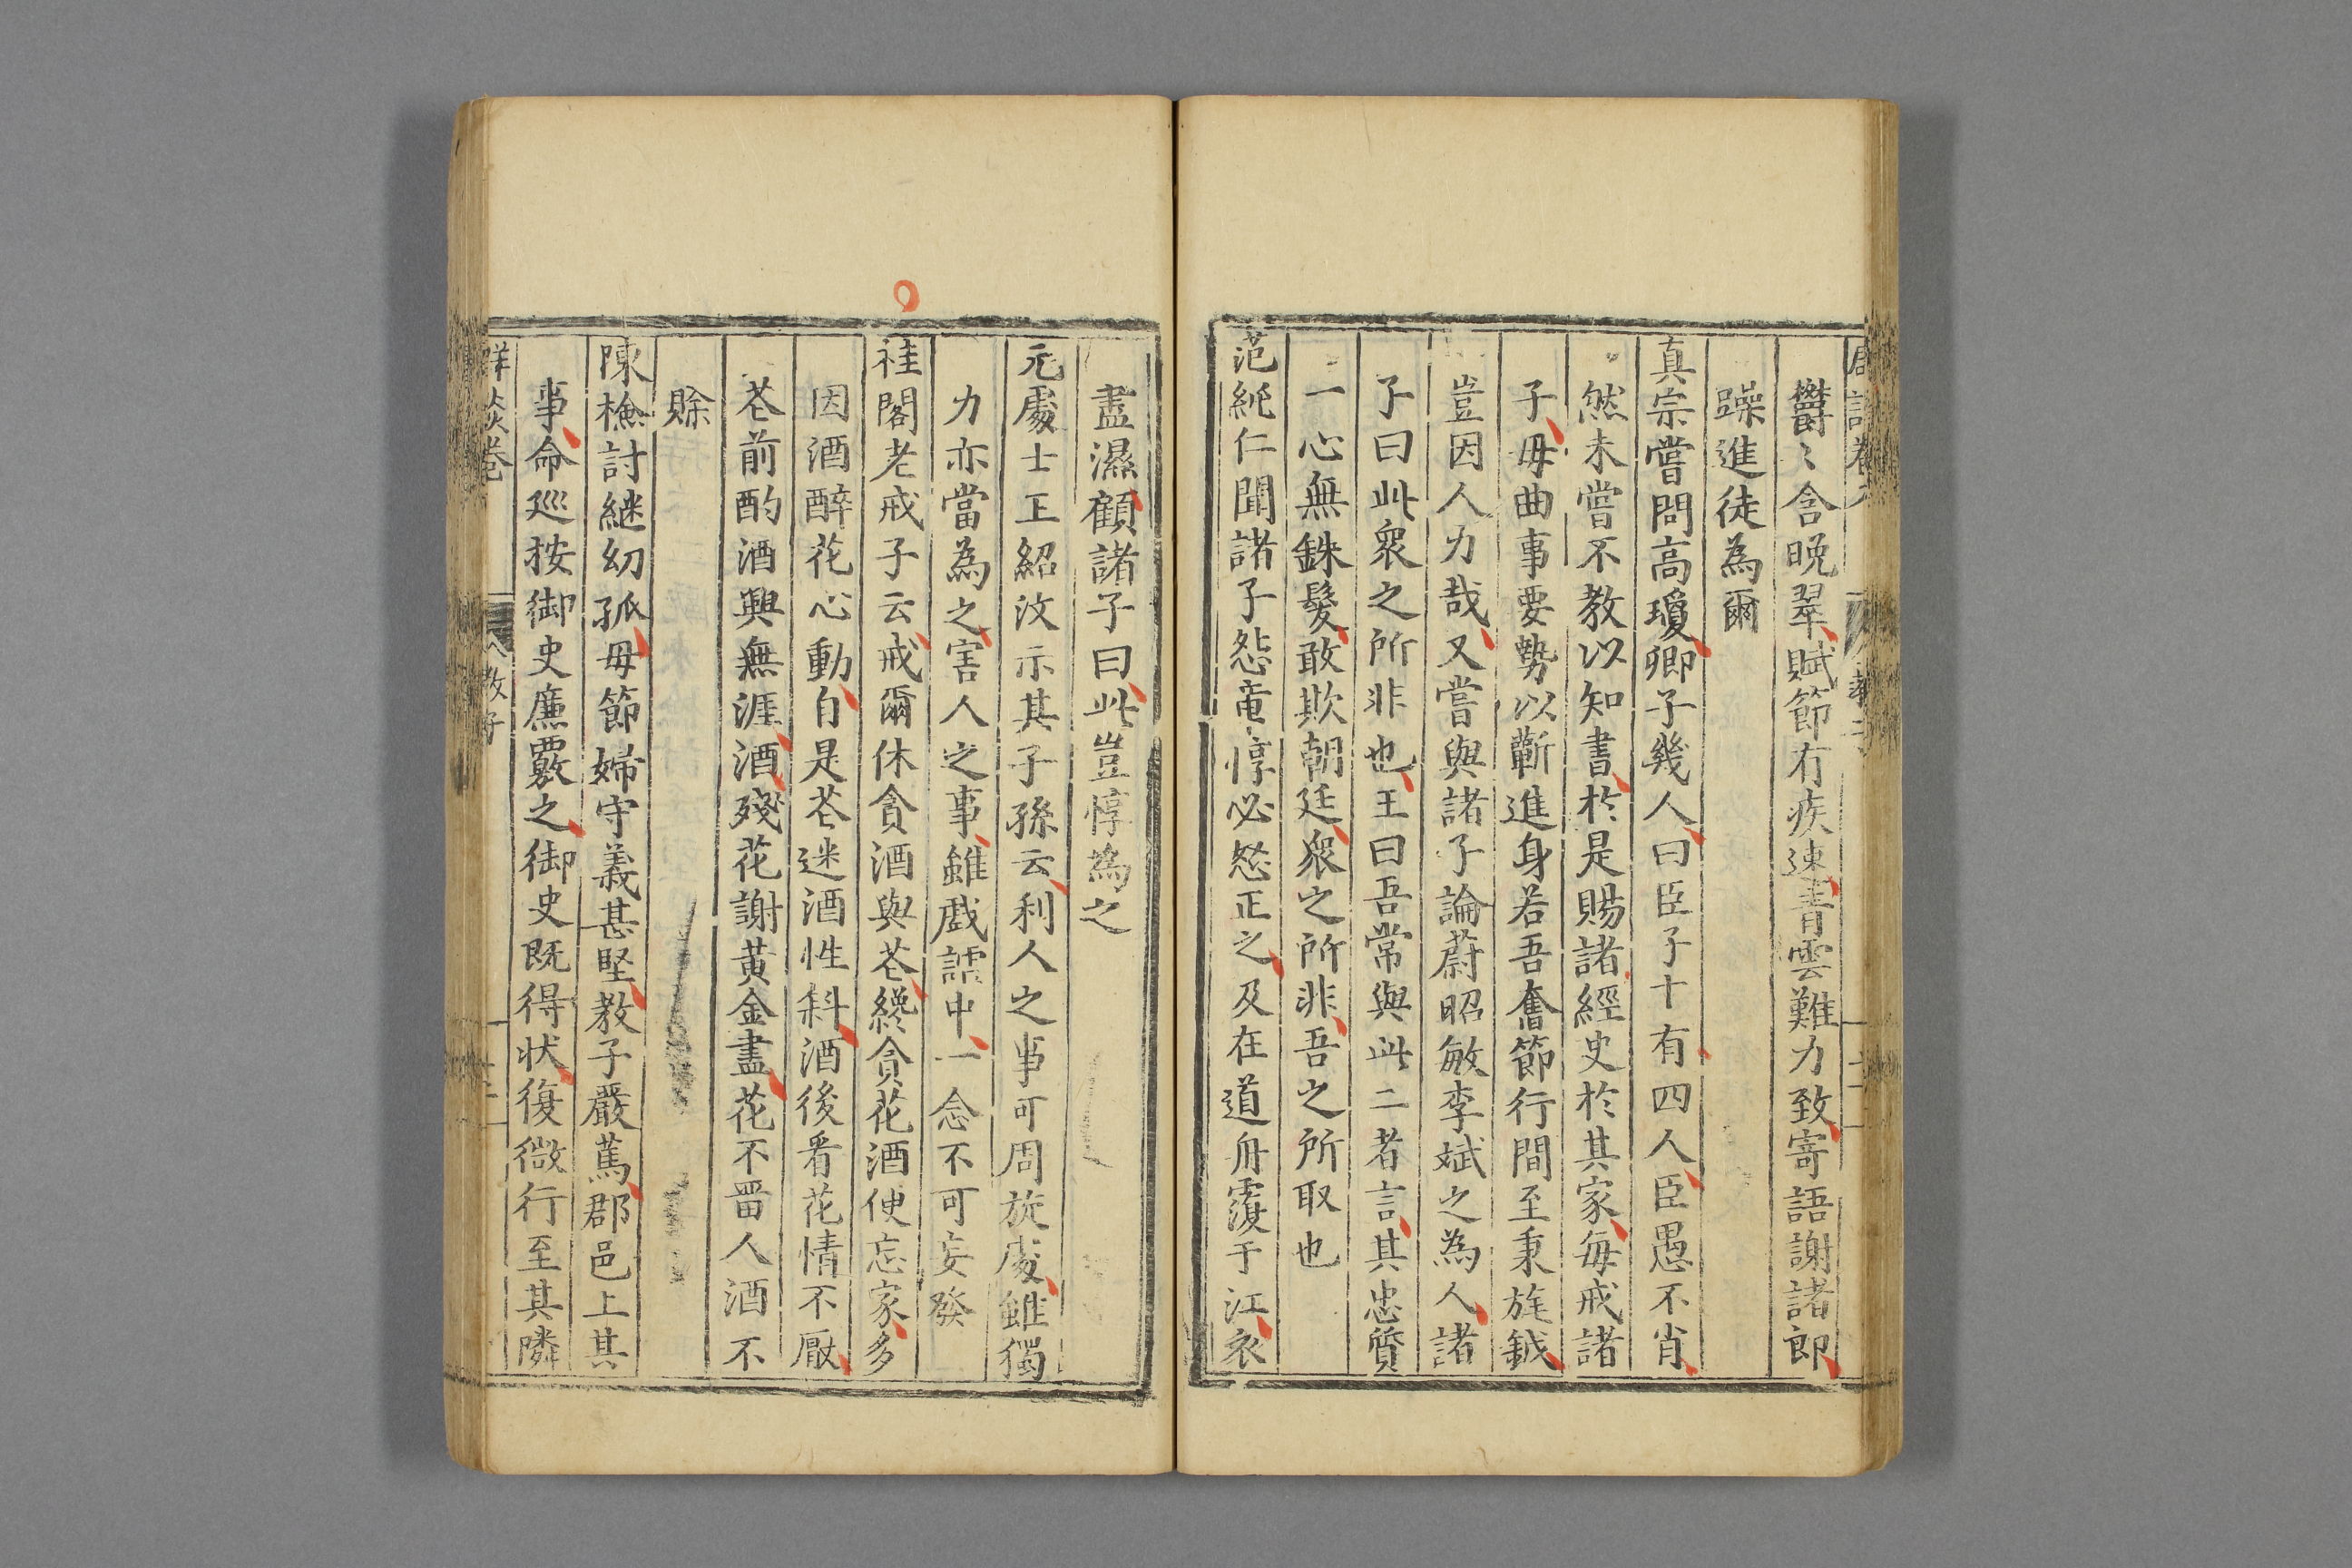 鬱〻含晚翠賦節有疾速青雲難力致寄語謝諸郎
躁進徒為爾
真宗嘗問高瓊卿子幾人曰臣子十有四人臣愚不肖
然未嘗不教以知書於是賜諸經史於其家每戒諸
子毋曲事要勢以蘄進身若吾奮節行間至秉旄鉞
豈因人力哉又嘗與諸子論蔚昭敏李斌之為人諸
子曰此眾之所非也王曰吾常與此二者言其忠質
一心無銖髮敢欺朝廷眾之所非吾之所取也
范純仁聞諸子怨章惇必怒正之及在道舟覆于江衣
盡濕顧諸子曰此豈惇為之
元處士王紹汶示其子孫云利人之事可周旋處雖獨
力亦當為之害人之事雖戲謔中一念不可妄發
桂閣老戒子云戒爾休貪酒與花纔貪花酒便忘家多
因酒醉花心動自是花迷酒性斜酒後看花情不厭
花前酌酒興無涯酒殘花謝黃金盡花不畱人酒不
賖
陳檢討継幼孤毋節婦守義甚堅教子嚴篤郡邑上其
事命廵按御史廉覈之御史既得状復微行至其隣